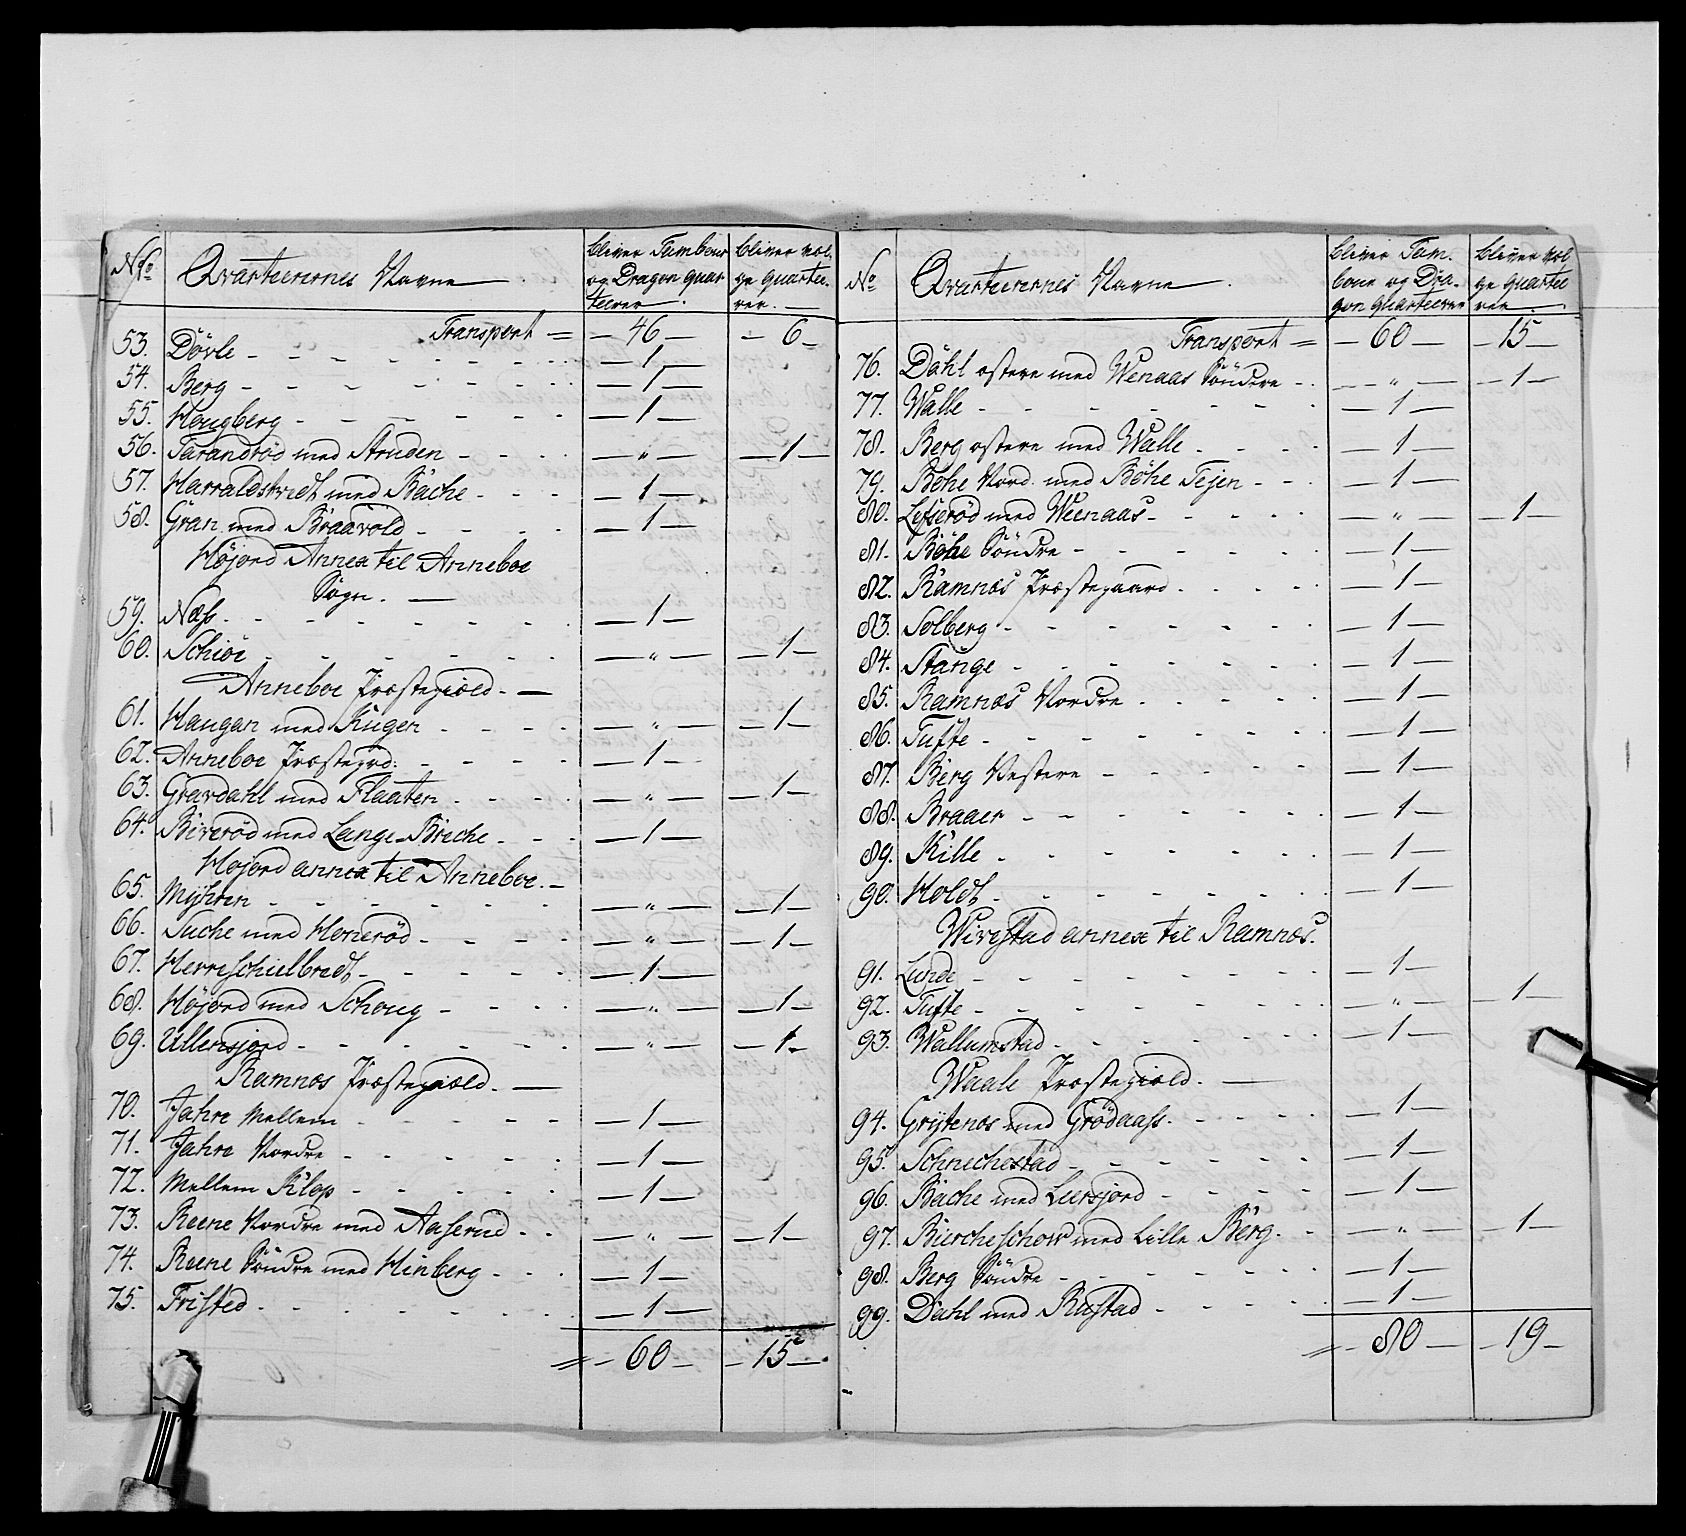 No Qvarteerernes Navne bliver Tambour og Dragon Quarteerer. bliver Følge Quarteerer.
Transport = 46 6
53. Dövle 1
54. Berg 1
55. Hougberg 1
56. Tarandröd med Struden " 1
57. Harraldstvedt med Bache 1
58. Gran med Braavold 1
Höjord Annex til Anneboe
Sogn.
59. Næss 1
60. Schiöe " 1
Anneboe Præstegiæld.
61. Haugan med Kugen " 1
62. Anneboe Præstegrd: 1
63. Gravdahl med Flaaten " 1
64. Biveröd med Lange Breche 1
Hojord annex til Anneboe.
65. Myhren " 1
66. Suche med Honeröd " 1
67. Herreschielbredt 1
68. Höjord med Schoug " 1
69. Ullensjord " 1
Ramnæs Præstegiæld.
70. Jahre Mellem 1
71. Jahre Nordre 1
72. Mellem Klop 1
73. Reene Nordre med Aaserud " 1
74. Reene Söndre med Hinberg 1
75. Fristed 1
= 60 15
No Qvarteerernes Navne bliver Tambour og Dragon Quarteerer bliver Føl ge Quarteerer
Transport = 60 15
76. Dahl østere med Wenaas Söndre " 1
77. Walle 1
78. Berg østere med Walle 1
79. Böhe Nord. med Böhe Tejen 1
80. Lefseröd med Weenaas " 1
81. Böhe Söndre 1
82. Ramnæs Præstegaard 1
83. Solberg 1
84. Stange 1
85. Ramnæs Nordre 1
86. Tufte 1
87. Berg Vestere 1
88. Braaer 1
89. Kille 1
90. Holdt 1
Wivestad annex til Ramnæs.
91. Lunde 1
92. Tufte " 1
93. Wallumstad 1
Waale Præstegiæld.
94. Grytenæs med Grödaass. 1
95. Schnechestad 1
96. Bache med Leersjord 1
97. Biercheschow med Lille Berg " 1
98. Berg Söndre 1
99. Dahl med Rustad 1
= 80 19